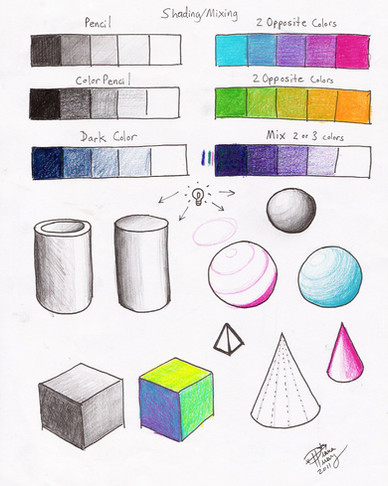 Shading/Mixing
Pencil
2 Opposite Colors
Color Pencil
2 Opposite Colors
Dark Color
Mix 2 or 3 colors
2011